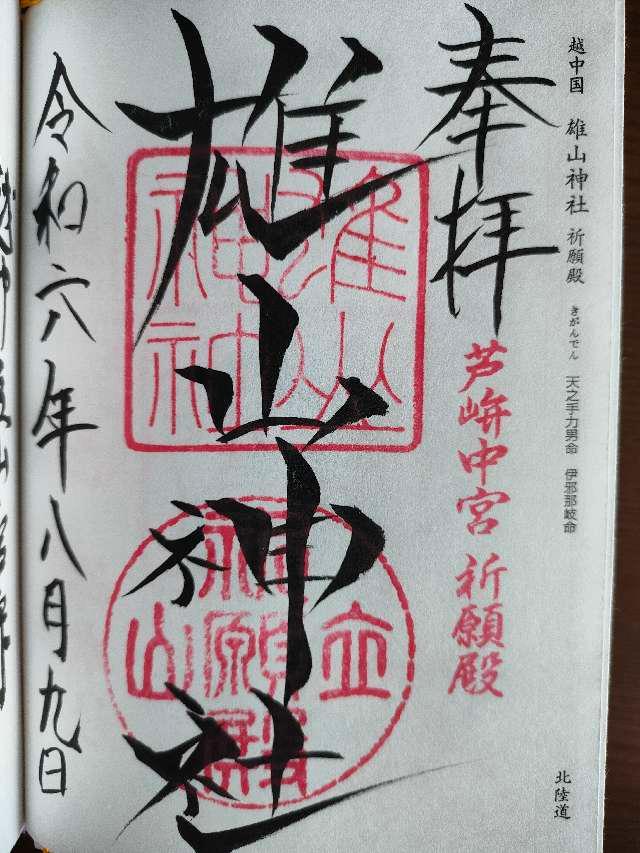 越中国 雄山神社 祈願殿 きがんでん 天之手力男命 伊邪那岐命
北陸道
奉拝
芦峅中宮 祈願殿
雄山神社
雄山
神社
立山
祈願殿
令和六年八月九日